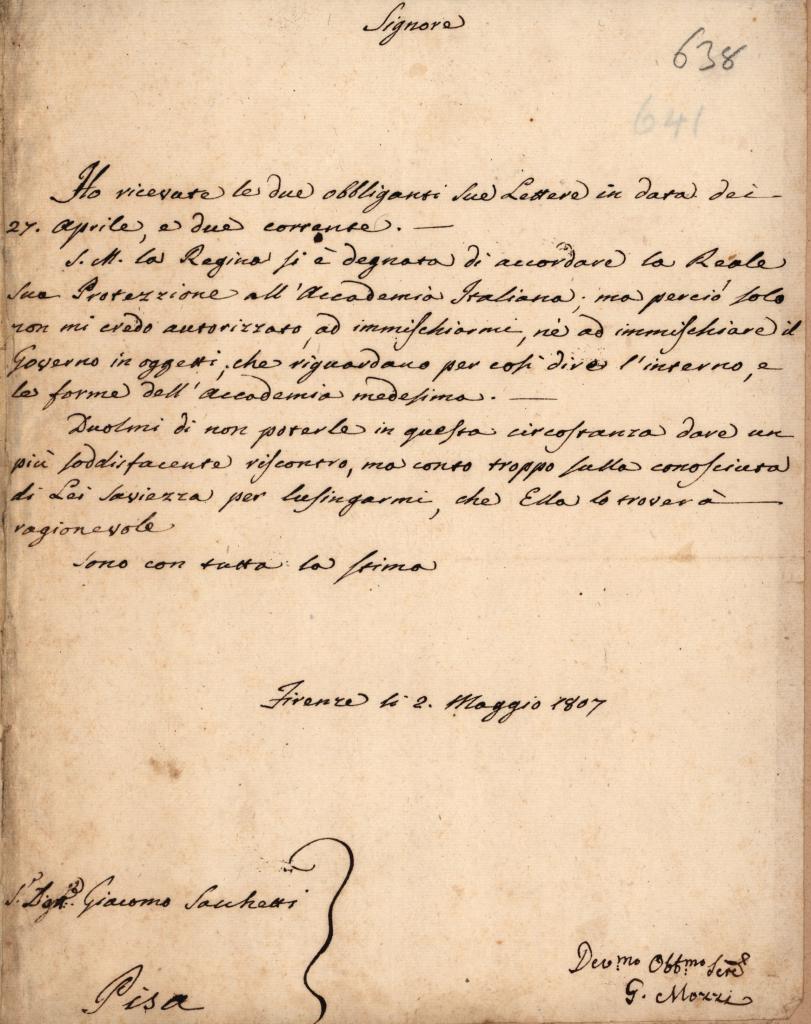 Signore
638
641
Ho ricevute le due obbliganti sue Lettere in data dei
27. Aprile, e due corrente. —
S. M. la Regina si è degnata di accordare la Reale
sua Protezzione all'Accademia Italiana; ma perciò solo
non mi credo autorizzato, ad immischiarmi, nè ad immischiare il
Governo in oggetti, che riguardano per così dire l'interno, e
le forme dell'Accademia medesima. —
Duolmi di non poterle in questa circostanza dare un
più soddisfacente riscontro, ma conto troppo sulla conosciuta
di Lei saviezza per lusingarmi, che Ella lo troverà —
ragionevole
Sono con tutta la stima
Firenze li 2. Maggio 1807
Giacomo Sacchetti
Pisa
Dev.mo Obb.mo
G. Mozzi